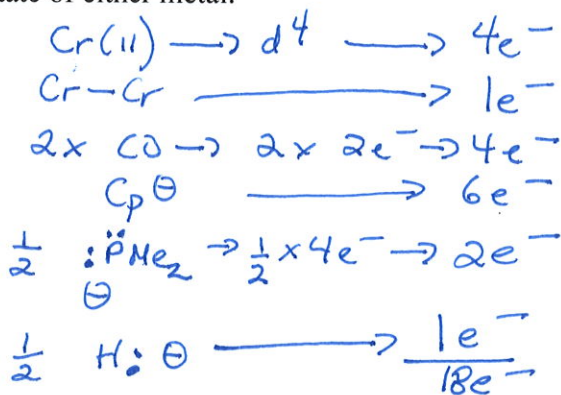 state of either metal.
Cr(II) → d⁴ → 4e⁻
Cr-Cr → 1e⁻
2x CO → 2x 2e⁻ → 4e⁻
Cp⊖ → 6e⁻
½ :P̈Me₂ ⊖ → ½ x 4e⁻ → 2e⁻
½ H:⊖ → 1e⁻
18e⁻